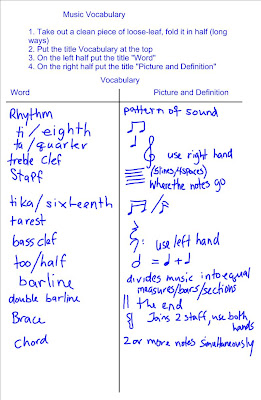 Music Vocabulary
1. Take out a clean piece of loose-leaf, fold it in half (long
ways)
2. Put the title Vocabulary at the top
3. On the left half put the title "Word"
4. On the right half put the title "Picture and Definition"
Vocabulary
Word Picture and Definition
Rhythm pattern of sound
ti/eighth
ta/quarter
treble clef use right hand
Staff (5lines/4spaces)
Where the notes go
tika/sixteenth
ta rest
bass clef use left hand
too/half = +
barline divides music into equal
measures/bars/sections
double barline the end
Brace Joins 2 staff, use both
hands
Chord 2 or more notes simultaneously